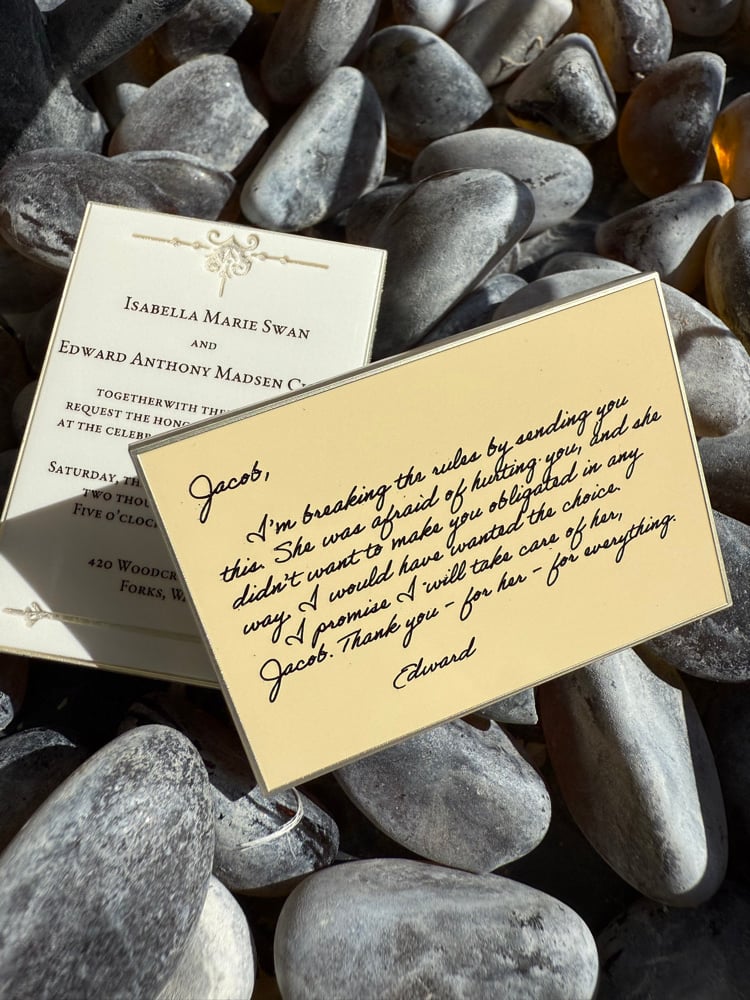 Isabella Marie Swan
and
Edward Anthony Madsen
togetherwith
request the
at the
Saturday,
two
Five o'
420
Forks,
Jacob,
I'm breaking thr rules by sending you
this. She was afraid of hurting you, and she
didn't want to make you obligated in any
way. I would have wanted the choice.
I promise I will take care of her,
Jacob. Thank you - for her - for everything.
Edward